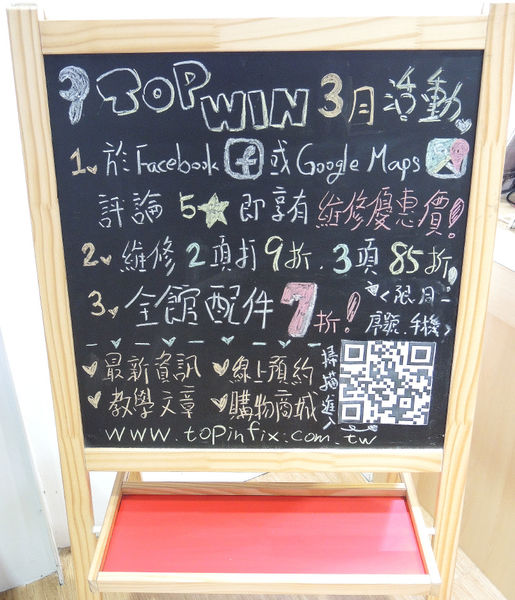 TOP WIN 3月活動
1、於Facebook 或Google Maps
評論 5 即享有 維修優惠價!
2、維修2項打9折.3項85折,
3、全館配件7折!
<限同一
序號.手機>
最新資訊 線上預約
教學文章 購物商城
掃描進入
www.topinfix.com.tw